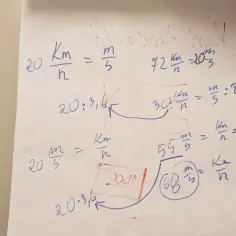 20 Km/h = m/s
72 Km/h = 20 m/s
20:3,6
30 Km/h = m/s
20 m/s = Km/h
55 m/s = Km/h
68 m/s = Km/h
20·3,6